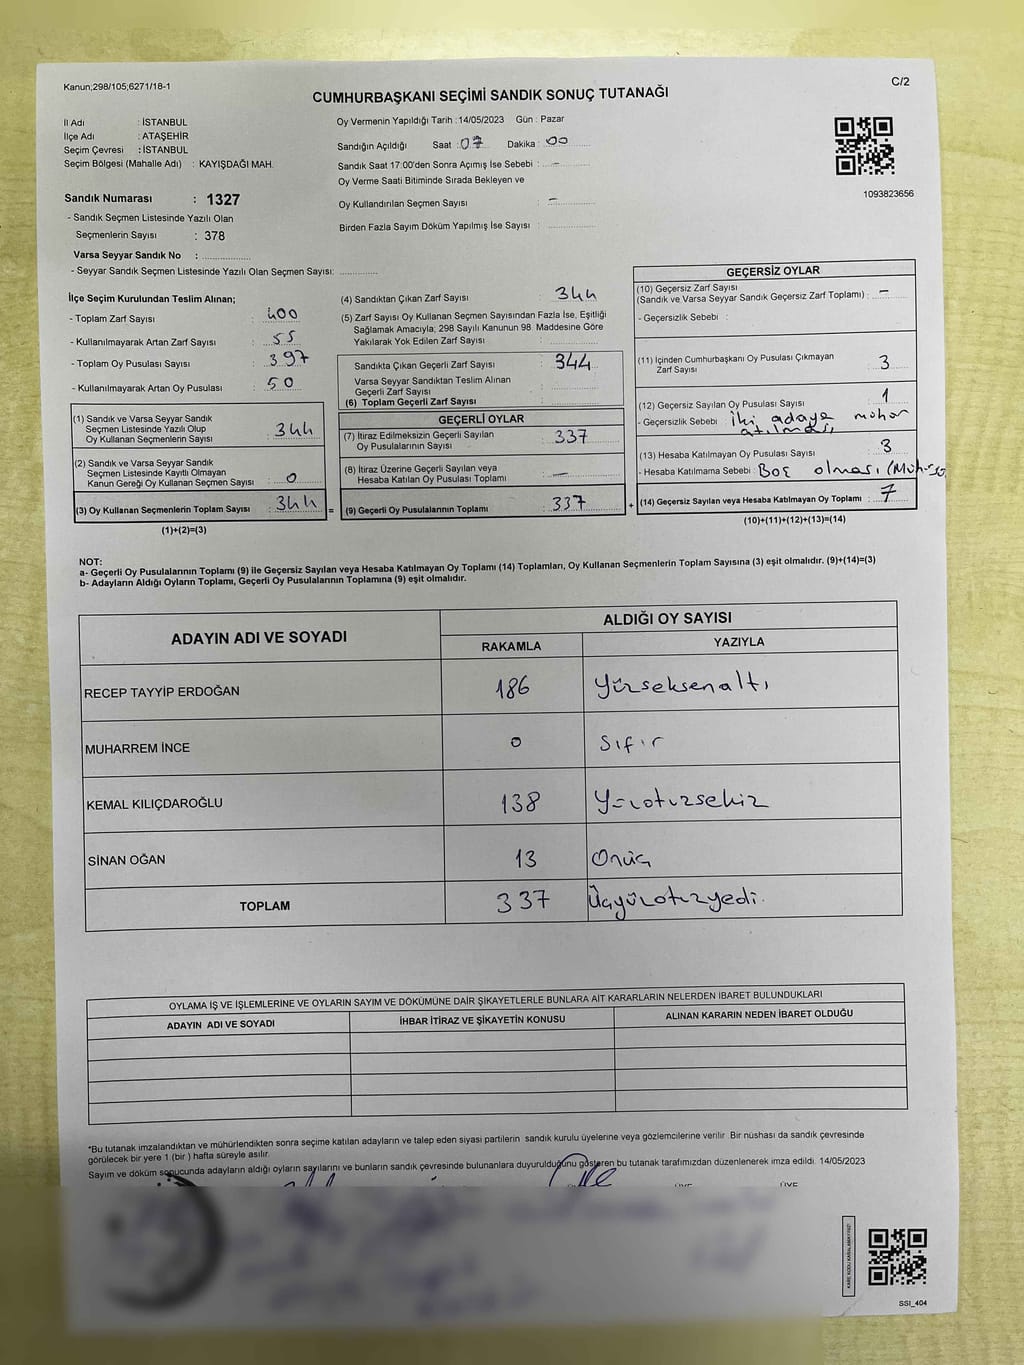 Kanun;298/105;6271/18-1
C/2
CUMHURBAŞKANI SEÇİMİ SANDIK SONUÇ TUTANAĞI
İl Adı : İSTANBUL
İlçe Adı : ATAŞEHİR
Seçim Çevresi : İSTANBUL
Seçim Bölgesi (Mahalle Adı) : KAYIŞDAĞI MAH.
Sandık Numarası : 1327
- Sandık Seçmen Listesinde Yazılı Olan
Seçmenlerin Sayısı : 378
Varsa Seyyar Sandık No :
- Seyyar Sandık Seçmen Listesinde Yazılı Olan Seçmen Sayısı:
Oy Vermenin Yapıldığı Tarih :14/05/2023 Gün : Pazar
Sandığın Açıldığı Saat : 07 Dakika : 00
Sandık Saat 17:00'den Sonra Açımış İse Sebebi : -
Oy Verme Saati Bitiminde Sırada Bekleyen ve
Oy Kullandırılan Seçmen Sayısı : -
Birden Fazla Sayım Döküm Yapılmış İse Sayısı :
1093823656
İlçe Seçim Kurulundan Teslim Alınan;
- Toplam Zarf Sayısı : 400
- Kullanılmayarak Artan Zarf Sayısı : 55
- Toplam Oy Pusulası Sayısı : 397
- Kullanılmayarak Artan Oy Pusulası : 50
(1) Sandık ve Varsa Seyyar Sandık
Seçmen Listesinde Yazılı Olup
Oy Kullanan Seçmenlerin Sayısı : 344
(2) Sandık ve Varsa Seyyar Sandık
Seçmen Listesinde Kayıtlı Olmayan
Kanun Gereği Oy Kullanan Seçmen Sayısı : 0
(3) Oy Kullanan Seçmenlerin Toplam Sayısı : 344 =
(1)+(2)=(3)
(4) Sandıktan Çıkan Zarf Sayısı : 344
(5) Zarf Sayısı Oy Kullanan Seçmen Sayısından Fazla İse, Eşitliği
Sağlamak Amacıyla; 298 Sayılı Kanunun 98. Maddesine Göre
Yakılarak Yok Edilen Zarf Sayısı :
Sandıkta Çıkan Geçerli Zarf Sayısı : 344
Varsa Seyyar Sandıktan Teslim Alınan
Geçerli Zarf Sayısı :
(6) Toplam Geçerli Zarf Sayısı :
GEÇERLİ OYLAR
(7) İtiraz Edilmeksizin Geçerli Sayılan
Oy Pusulalarının Sayısı : 337
(8) İtiraz Üzerine Geçerli Sayılan veya
Hesaba Katılan Oy Pusulası Toplamı : -
(9) Geçerli Oy Pusulalarının Toplamı : 337 +
GEÇERSİZ OYLAR
(10) Geçersiz Zarf Sayısı
(Sandık ve Varsa Seyyar Sandık Geçersiz Zarf Toplamı) : -
- Geçersizlik Sebebi :
(11) İçinden Cumhurbaşkanı Oy Pusulası Çıkmayan
Zarf Sayısı : 3
(12) Geçersiz Sayılan Oy Pusulası Sayısı : 1
- Geçersizlik Sebebi : İki adaya mühür
atılması
(13) Hesaba Katılmayan Oy Pusulası Sayısı : 3
- Hesaba Katılmama Sebebi : Boş olması
(14) Geçersiz Sayılan veya Hesaba Katılmayan Oy Toplamı : 7
(10)+(11)+(12)+(13)=(14)
NOT:
a- Geçerli Oy Pusulalarının Toplamı (9) ile Geçersiz Sayılan veya Hesaba Katılmayan Oy Toplamı (14) Toplamları, Oy Kullanan Seçmenlerin Toplam Sayısına (3) eşit olmalıdır. (9)+(14)=(3)
b- Adayların Aldığı Oyların Toplamı, Geçerli Oy Pusulalarının Toplamına (9) eşit olmalıdır.
ADAYIN ADI VE SOYADI
ALDIĞI OY SAYISI
RAKAMLA YAZIYLA
RECEP TAYYİP ERDOĞAN 186 Yüzseksenaltı
MUHARREM İNCE 0 Sıfır
KEMAL KILIÇDAROĞLU 138 Yüzotuzsekiz
SİNAN OĞAN 13 Onüç
TOPLAM 337 Üçyüzotuzyedi.
OYLAMA İŞ VE İŞLEMLERİNE VE OYLARIN SAYIM VE DÖKÜMÜNE DAİR ŞİKAYETLERLE BUNLARA AİT KARARLARIN NELERDEN İBARET BULUNDUKLARI
ADAYIN ADI VE SOYADI İHBAR İTİRAZ VE ŞİKAYETİN KONUSU ALINAN KARARIN NEDEN İBARET OLDUĞU
*Bu tutanak imzalandıktan ve mühürlendikten sonra seçime katılan adayların ve talep eden siyasi partilerin sandık kurulu üyelerine veya gözlemcilerine verilir Bir nüshası da sandık çevresinde
görülecek bir yere 1 (bir ) hafta süreyle asılır.
Sayım ve döküm sonucunda adayların aldığı oyların sayılarını ve bunların sandık çevresinde bulunanlara duyurulduğunu gösteren bu tutanak tarafımızdan düzenlenerek imza edildi. 14/05/2023
ÜYE ÜYE
KARE KODU KARALAMAYINIZ!
SSİ_404